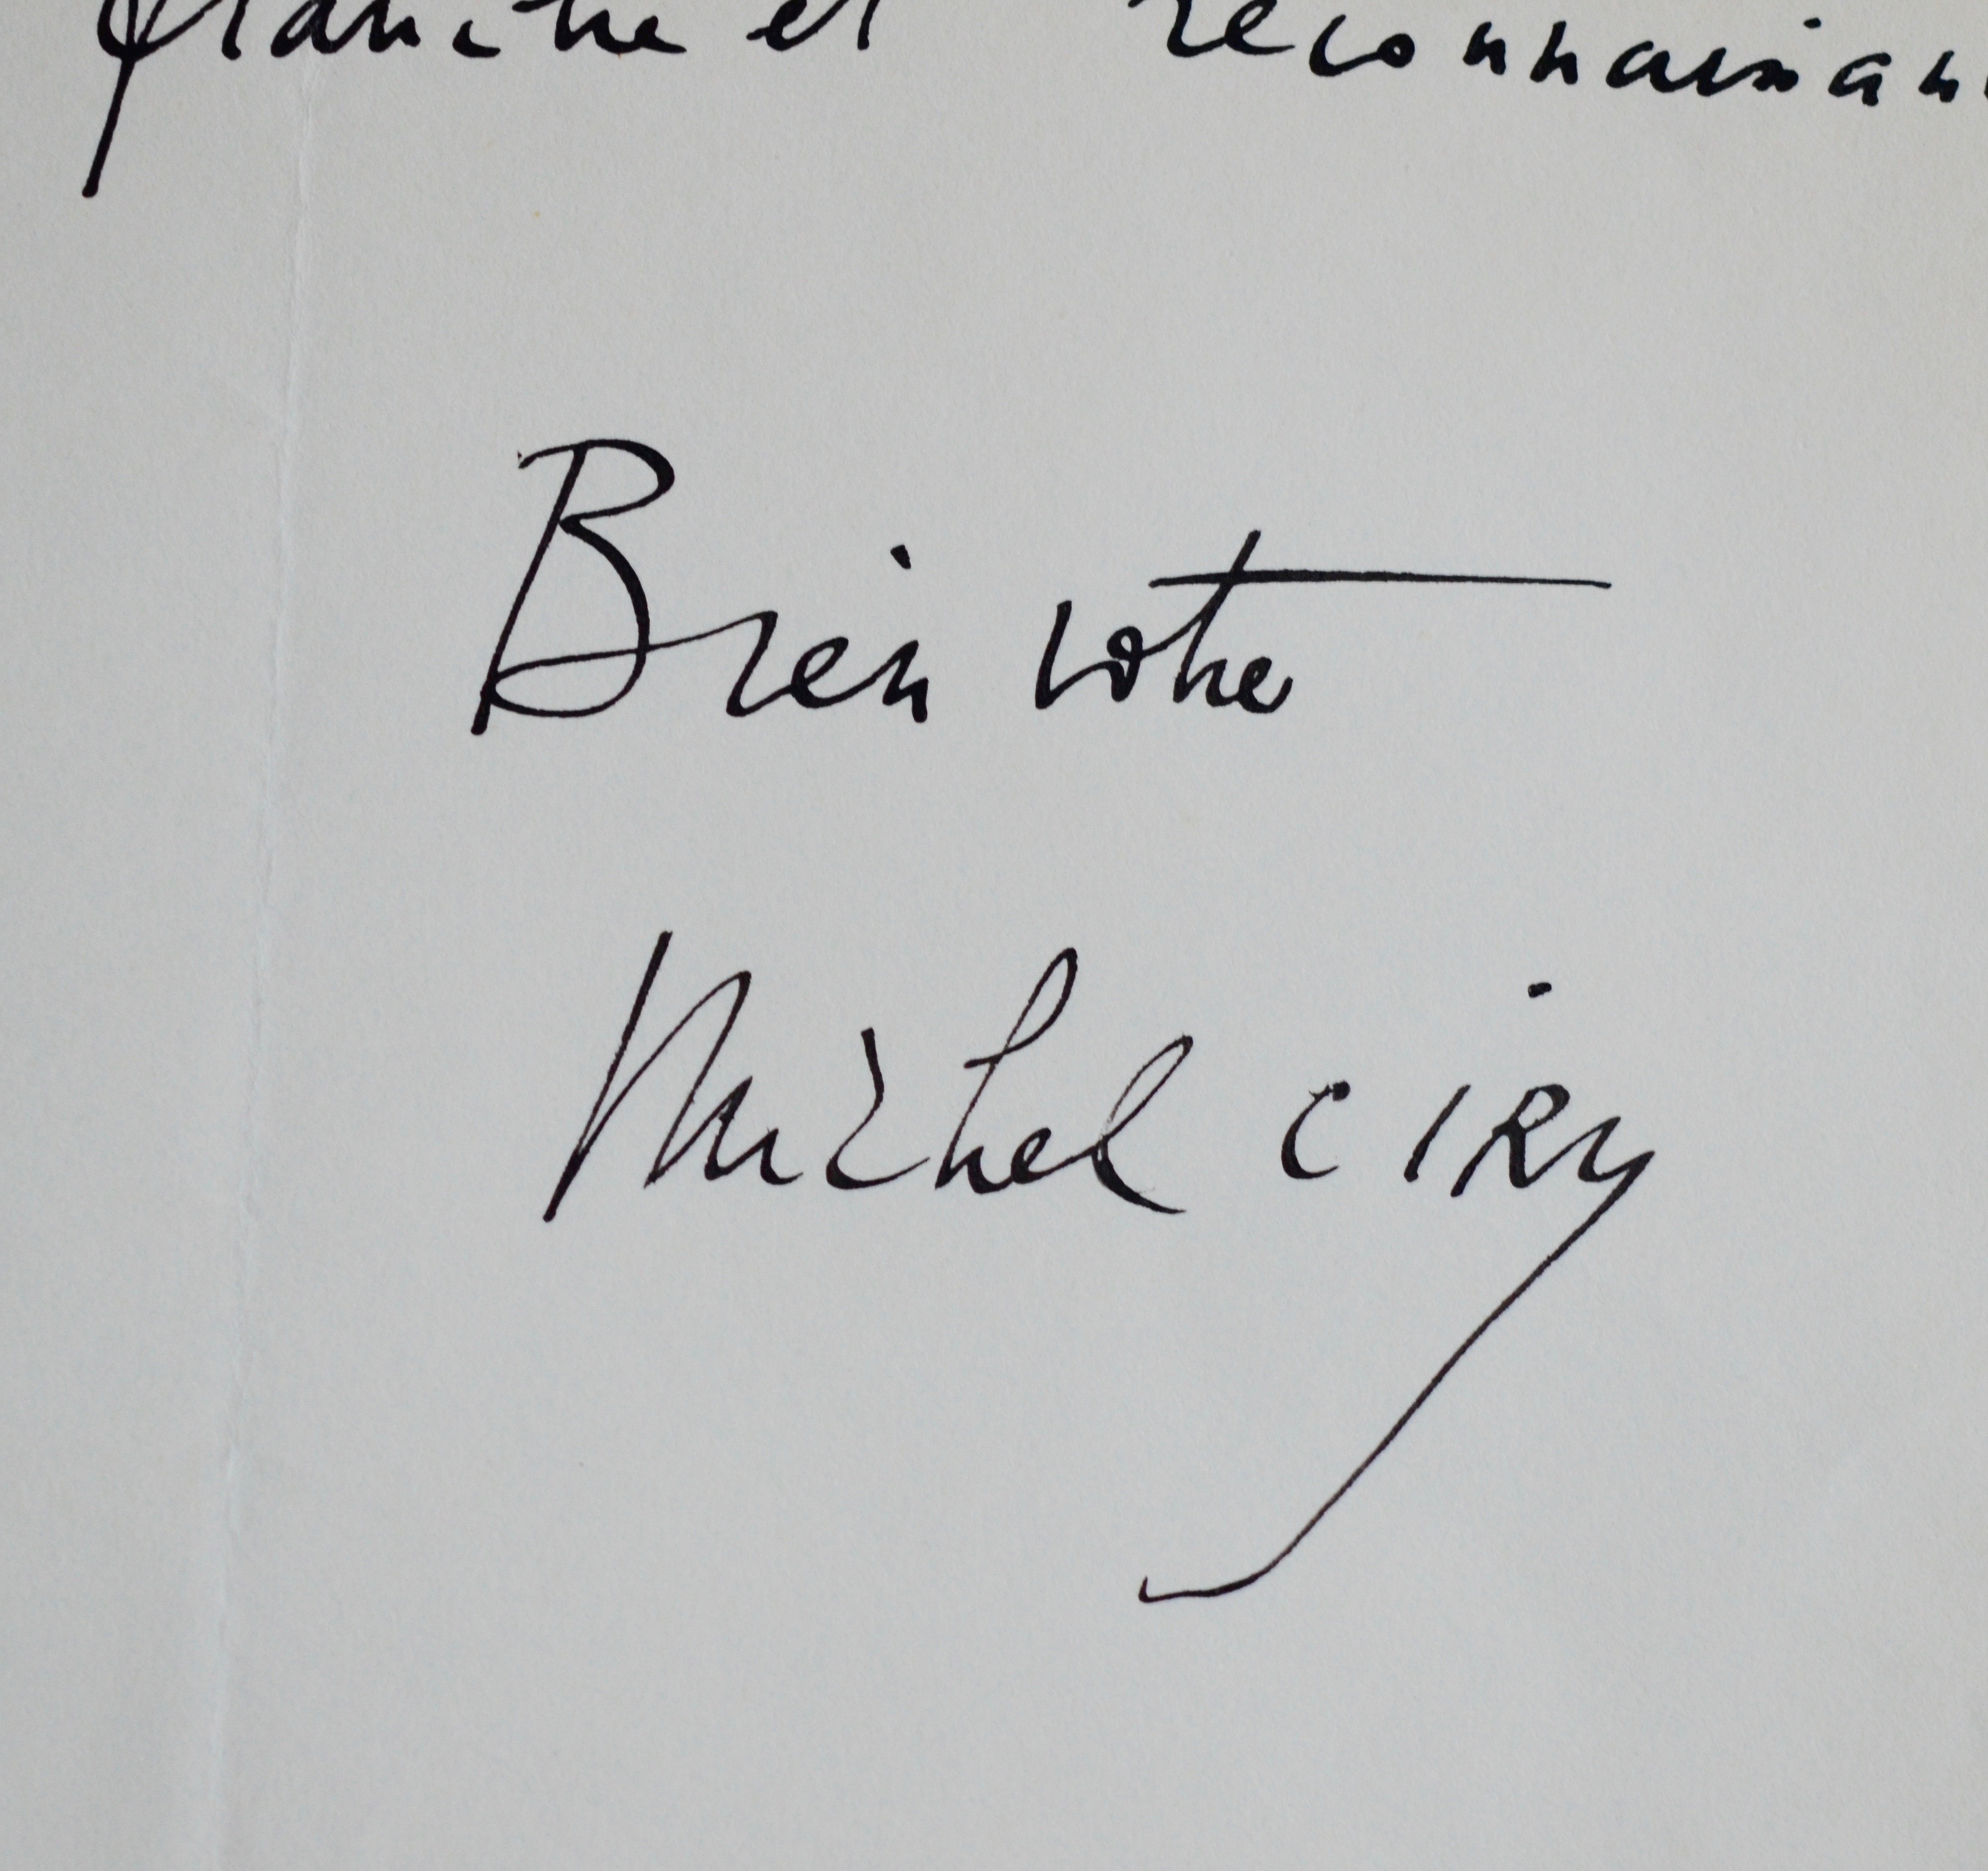 franche et reconnaissan
Bien votre
Michel CIRY